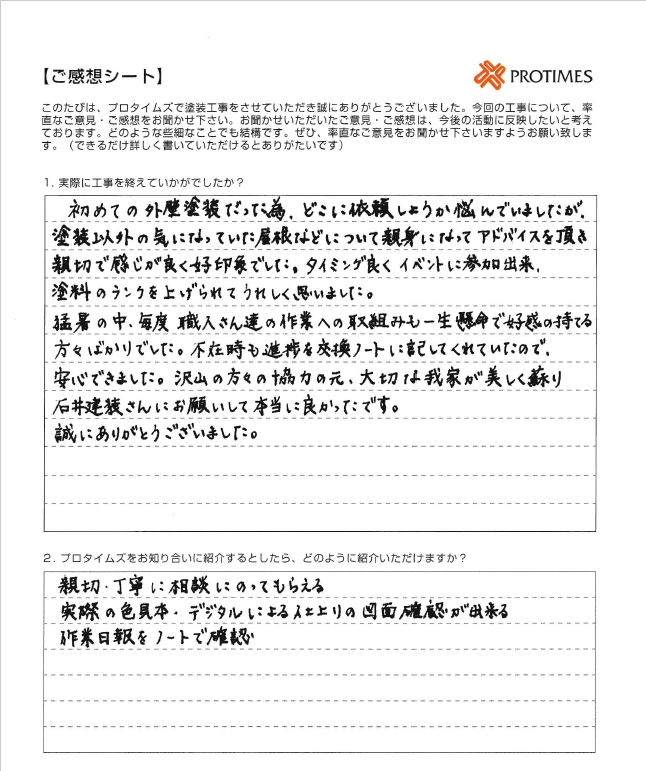 【ご感想シート】
PROTIMES
このたびは、プロタイムズで塗装工事をさせていただき誠にありがとうございました。今回の工事について、率
直なご意見・ご感想をお聞かせ下さい。お聞かせいただいたご意見・ご感想は、今後の活動に反映したいと考え
ております。どのような些細なことでも結構です。ぜひ、率直なご意見をお聞かせ下さいますようお願い致しま
す。（できるだけ詳しく書いていただけるとありがたいです）
1. 実際に工事を終えていかがでしたか？
初めての外壁塗装だった為、どこに依頼しようか悩んでいましたが、
塗装以外の気になっていた屋根などについて親身になってアドバイスを頂き
親切で感じが良く好印象でした。タイミング良くイベントに参加出来、
塗料のランクを上げられてうれしく思いました。
猛暑の中、毎度 職人さん達の作業への取組みも一生懸命で好感の持てる
方々ばかりでした。不在時も進捗を交換ノートに記してくれていたので、
安心できました。沢山の方々の協力の元、大切な我家が美しく蘇り
石井建装さんにお願いして本当に良かったです。
誠にありがとうございました。
2. プロタイムズをお知り合いに紹介するとしたら、どのように紹介いただけますか？
親切・丁寧に相談にのってもらえる
実際の色見本・デジタルによる仕上りの図面確認が出来る
作業日報をノートで確認